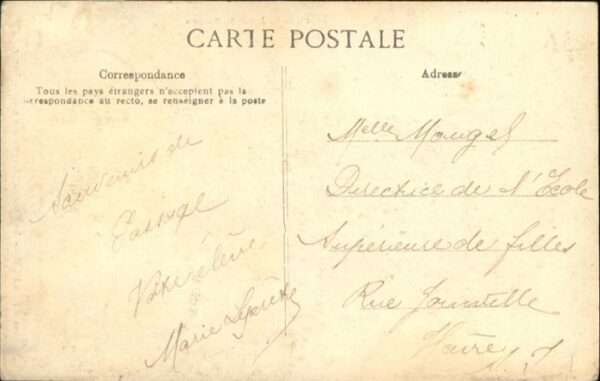 CARTE POSTALE
Correspondance
Tous les pays étrangers n'acceptent pas la
correspondance au recto, se renseigner à la poste
Souvenirs de
Passage
Votre élève
Marie
Adresse
Melle Mougel
Directrice de l'Ecole
Supérieure de filles
Rue